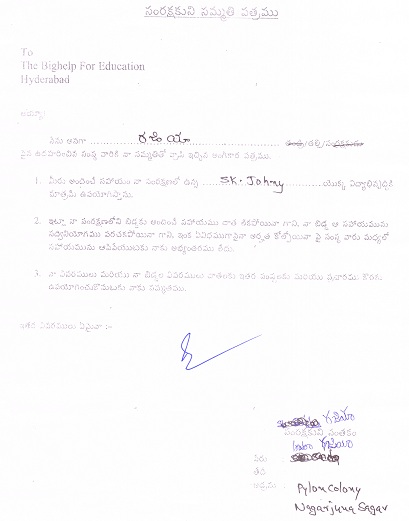 సంరక్షకుని సమ్మతి పత్రము
To
The Bighelp For Education
Hyderabad
అయ్యా,
నేను అనగా ...... రజియా ...... తండ్రి/తల్లి/సంరక్షకుడు
పైన ఉదహరించిన సంస్థ వారికి నా సమ్మతితో వ్రాసి ఇచ్చిన అంగీకార పత్రము.
1. మీరు అందించే సహాయం నా సంరక్షణలో ఉన్న ...... SK. Johny ...... యొక్క విద్యాభివృద్ధికి
మాత్రమే ఉపయోగిస్తాను.
2. ఇట్లు నా సంరక్షణలోని బిడ్డకు అందించే సహాయము చాలకపోయినా గాని, నా బిడ్డ ఆ సహాయమును
సద్వినియోగము పరచకపోయినా గాని, ఇంక ఏవిధముగానైనా అర్హత కోల్పోయినా పై సంస్థ వారు మధ్యలో
సహాయమును ఆపివేయుటకు నాకు అభ్యంతరము లేదు.
3. నా వివరములు మరియు నా బిడ్డల వివరములు
ఉపయోగించుకొనుటకు నాకు సమ్మతము.
ఇతర వివరములు ఏమైనా :-
రజియా
సంరక్షకుని సంతకం
పేరు
తేది
అడ్రసు : Pylon Colony
Nagarjuna Sagar